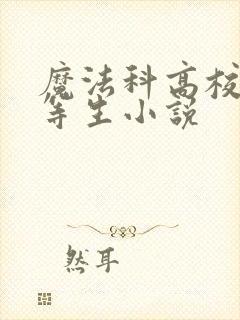 魔法科高校
等生小說
然耳